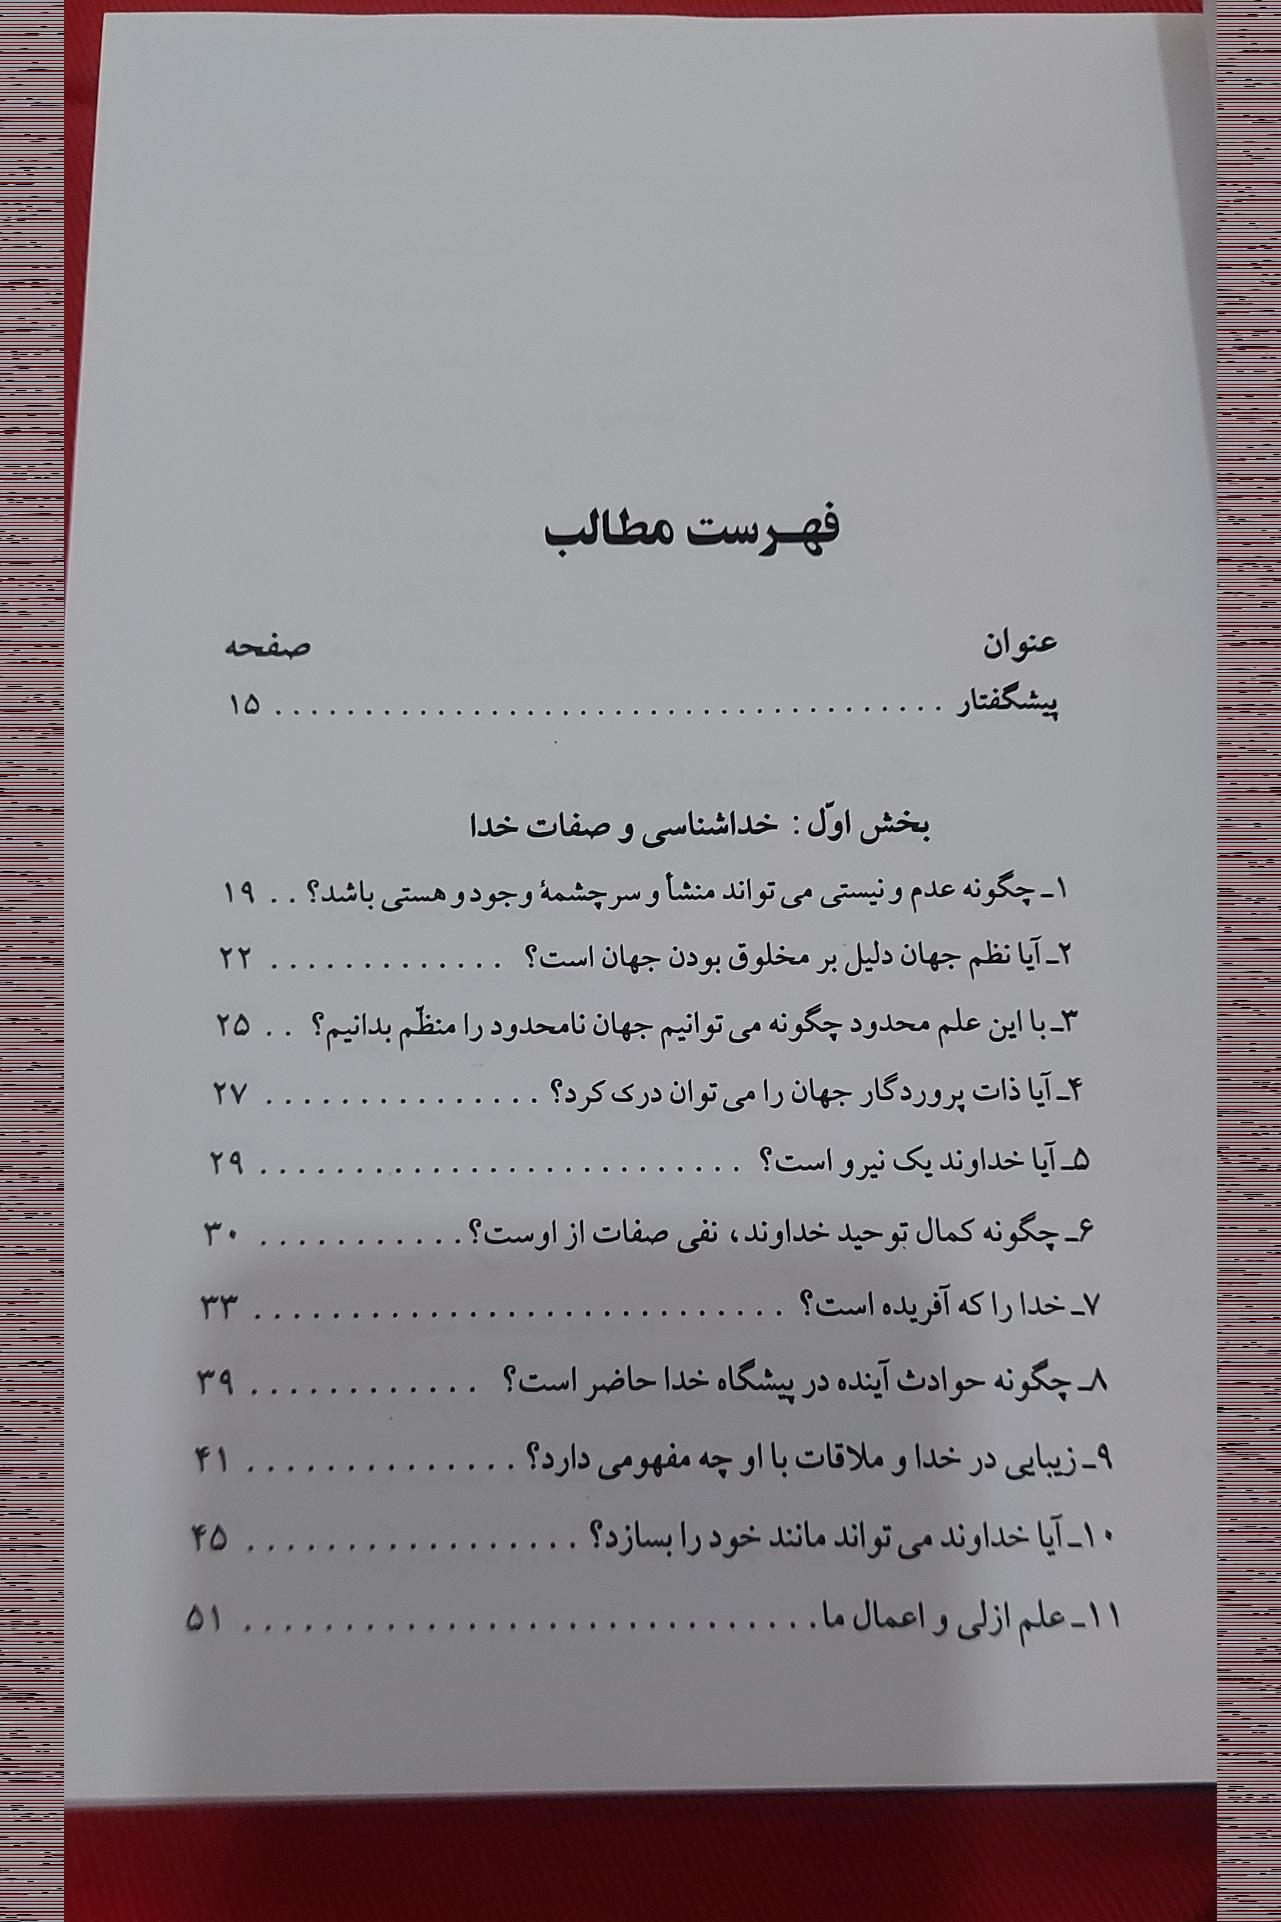 فهرست مطالب
عنوان صفحه
پیشگفتار . . . . . . . . . . . . . . . . . . . . . . . . . . . . . . . . . . . . . ۱۵
بخش اوّل : خداشناسی و صفات خدا
۱ـ چگونه عدم و نیستی می تواند منشأ و سرچشمهٔ وجود و هستی باشد؟ . . ۱۹
۲ـ آیا نظم جهان دلیل بر مخلوق بودن جهان است؟ . . . . . . . . . . . . . ۲۲
۳ـ با این علم محدود چگونه می توانیم جهان نامحدود را منظّم بدانیم؟ . . ۲۵
۴ـ آیا ذات پروردگار جهان را می توان درک کرد؟ . . . . . . . . . . . . . . . ۲۷
۵ـ آیا خداوند یک نیرو است؟ . . . . . . . . . . . . . . . . . . . . . . . . . ۲۹
۶ـ چگونه کمال توحید خداوند، نفی صفات از اوست؟ . . . . . . . . . . . ۳۰
۷ـ خدا را که آفریده است؟ . . . . . . . . . . . . . . . . . . . . . . . . . . . ۳۳
۸ـ چگونه حوادث آینده در پیشگاه خدا حاضر است؟ . . . . . . . . . . . . ۳۹
۹ـ زیبایی در خدا و ملاقات با او چه مفهومی دارد؟ . . . . . . . . . . . . . . ۴۱
۱۰ـ آیا خداوند می تواند مانند خود را بسازد؟ . . . . . . . . . . . . . . . . . ۴۵
۱۱ـ علم ازلی و اعمال ما . . . . . . . . . . . . . . . . . . . . . . . . . . . . . ۵۱